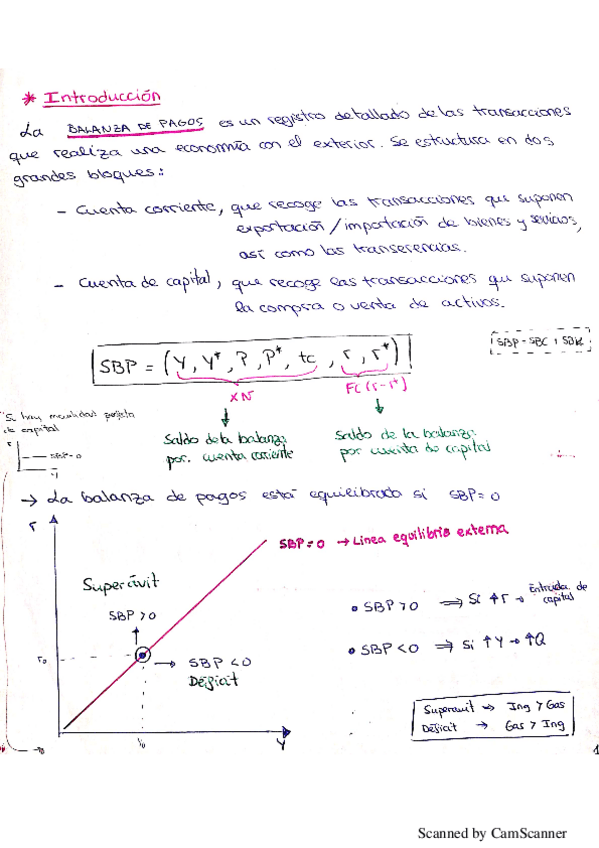 * Introducción
La BALANZA DE PAGOS es un registro detallado de las transacciones
que realiza una economía con el exterior. Se estructura en dos
grandes bloques:
- Cuenta corriente, que recoge las transacciones que suponen
exportación / importación de bienes y servicios,
así como las transerencias.
- Cuenta de capital, que recoge las transacciones que suponen
la compra o venta de activos.
SBP = (Y, Y*, P, P*, tc, r, r*)
SBP = SBC + SBK
XN
FC (r-r*)
Si hay movilidad perfecta
de capital
r
SBP=0
Y
Saldo de la balanza
por cuenta corriente
Saldo de la balanza
por cuenta de capital
→ La balanza de pagos está equilibrada si SBP=0
r
SBP=0 → Línea equilibrio externa
Superávit
SBP>0
r₀
→ SBP<0
Déficit
Y₀
Y
• SBP>0 ⇒ Si ↑r → Entrada de
capital
• SBP<0 ⇒ Si ↑Y → ↑Q
Superavit → Ing > Gas
Déficit → Gas > Ing
1
Scanned by CamScanner